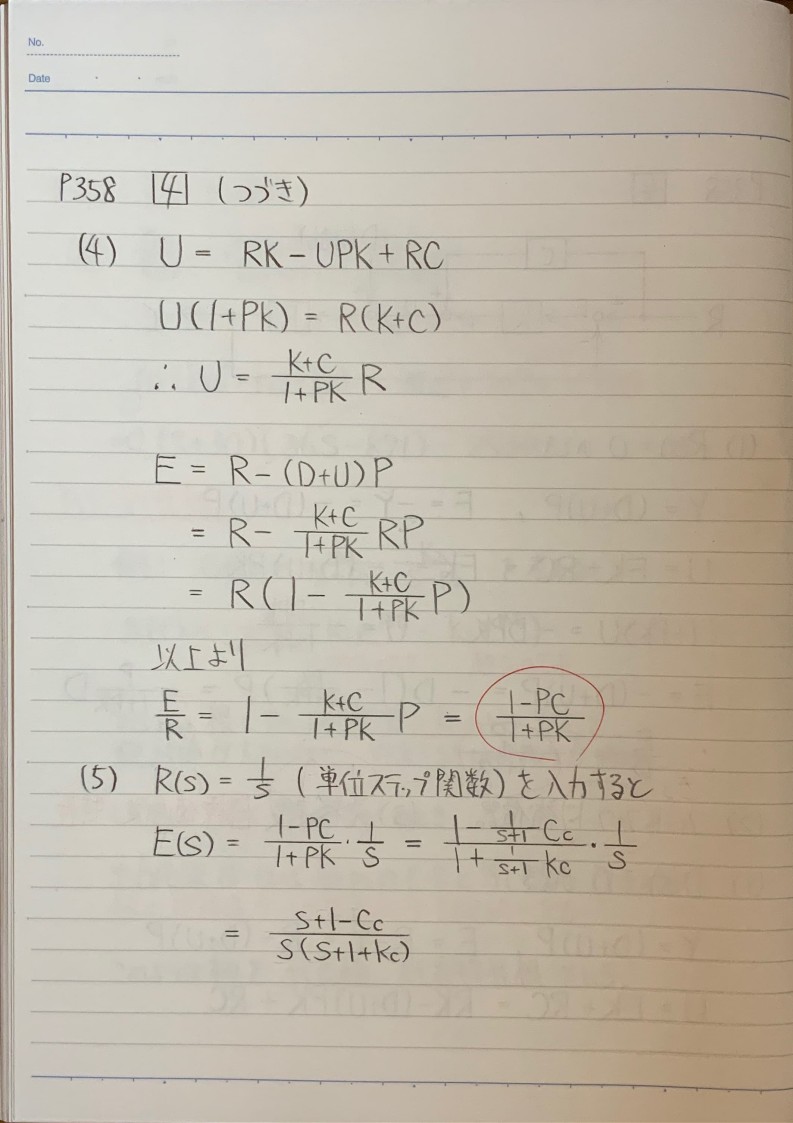 No.
Date
P358 4 (つづき)
(4) U = RK - UPK + RC
U(1+PK) = R(K+C)
∴ U = \frac{K+C}{1+PK} R
E = R - (D+U)P
= R - \frac{K+C}{1+PK} RP
= R(1 - \frac{K+C}{1+PK} P)
以上より
\frac{E}{R} = 1 - \frac{K+C}{1+PK} P = \frac{1-PC}{1+PK}
(5) R(s) = \frac{1}{s} (単位ステップ関数)を入力すると
E(s) = \frac{1-PC}{1+PK} \cdot \frac{1}{s} = \frac{1-\frac{1}{s+1}C_c}{1+\frac{1}{s+1}k_c} \cdot \frac{1}{s}
= \frac{s+1-C_c}{s(s+1+k_c)}